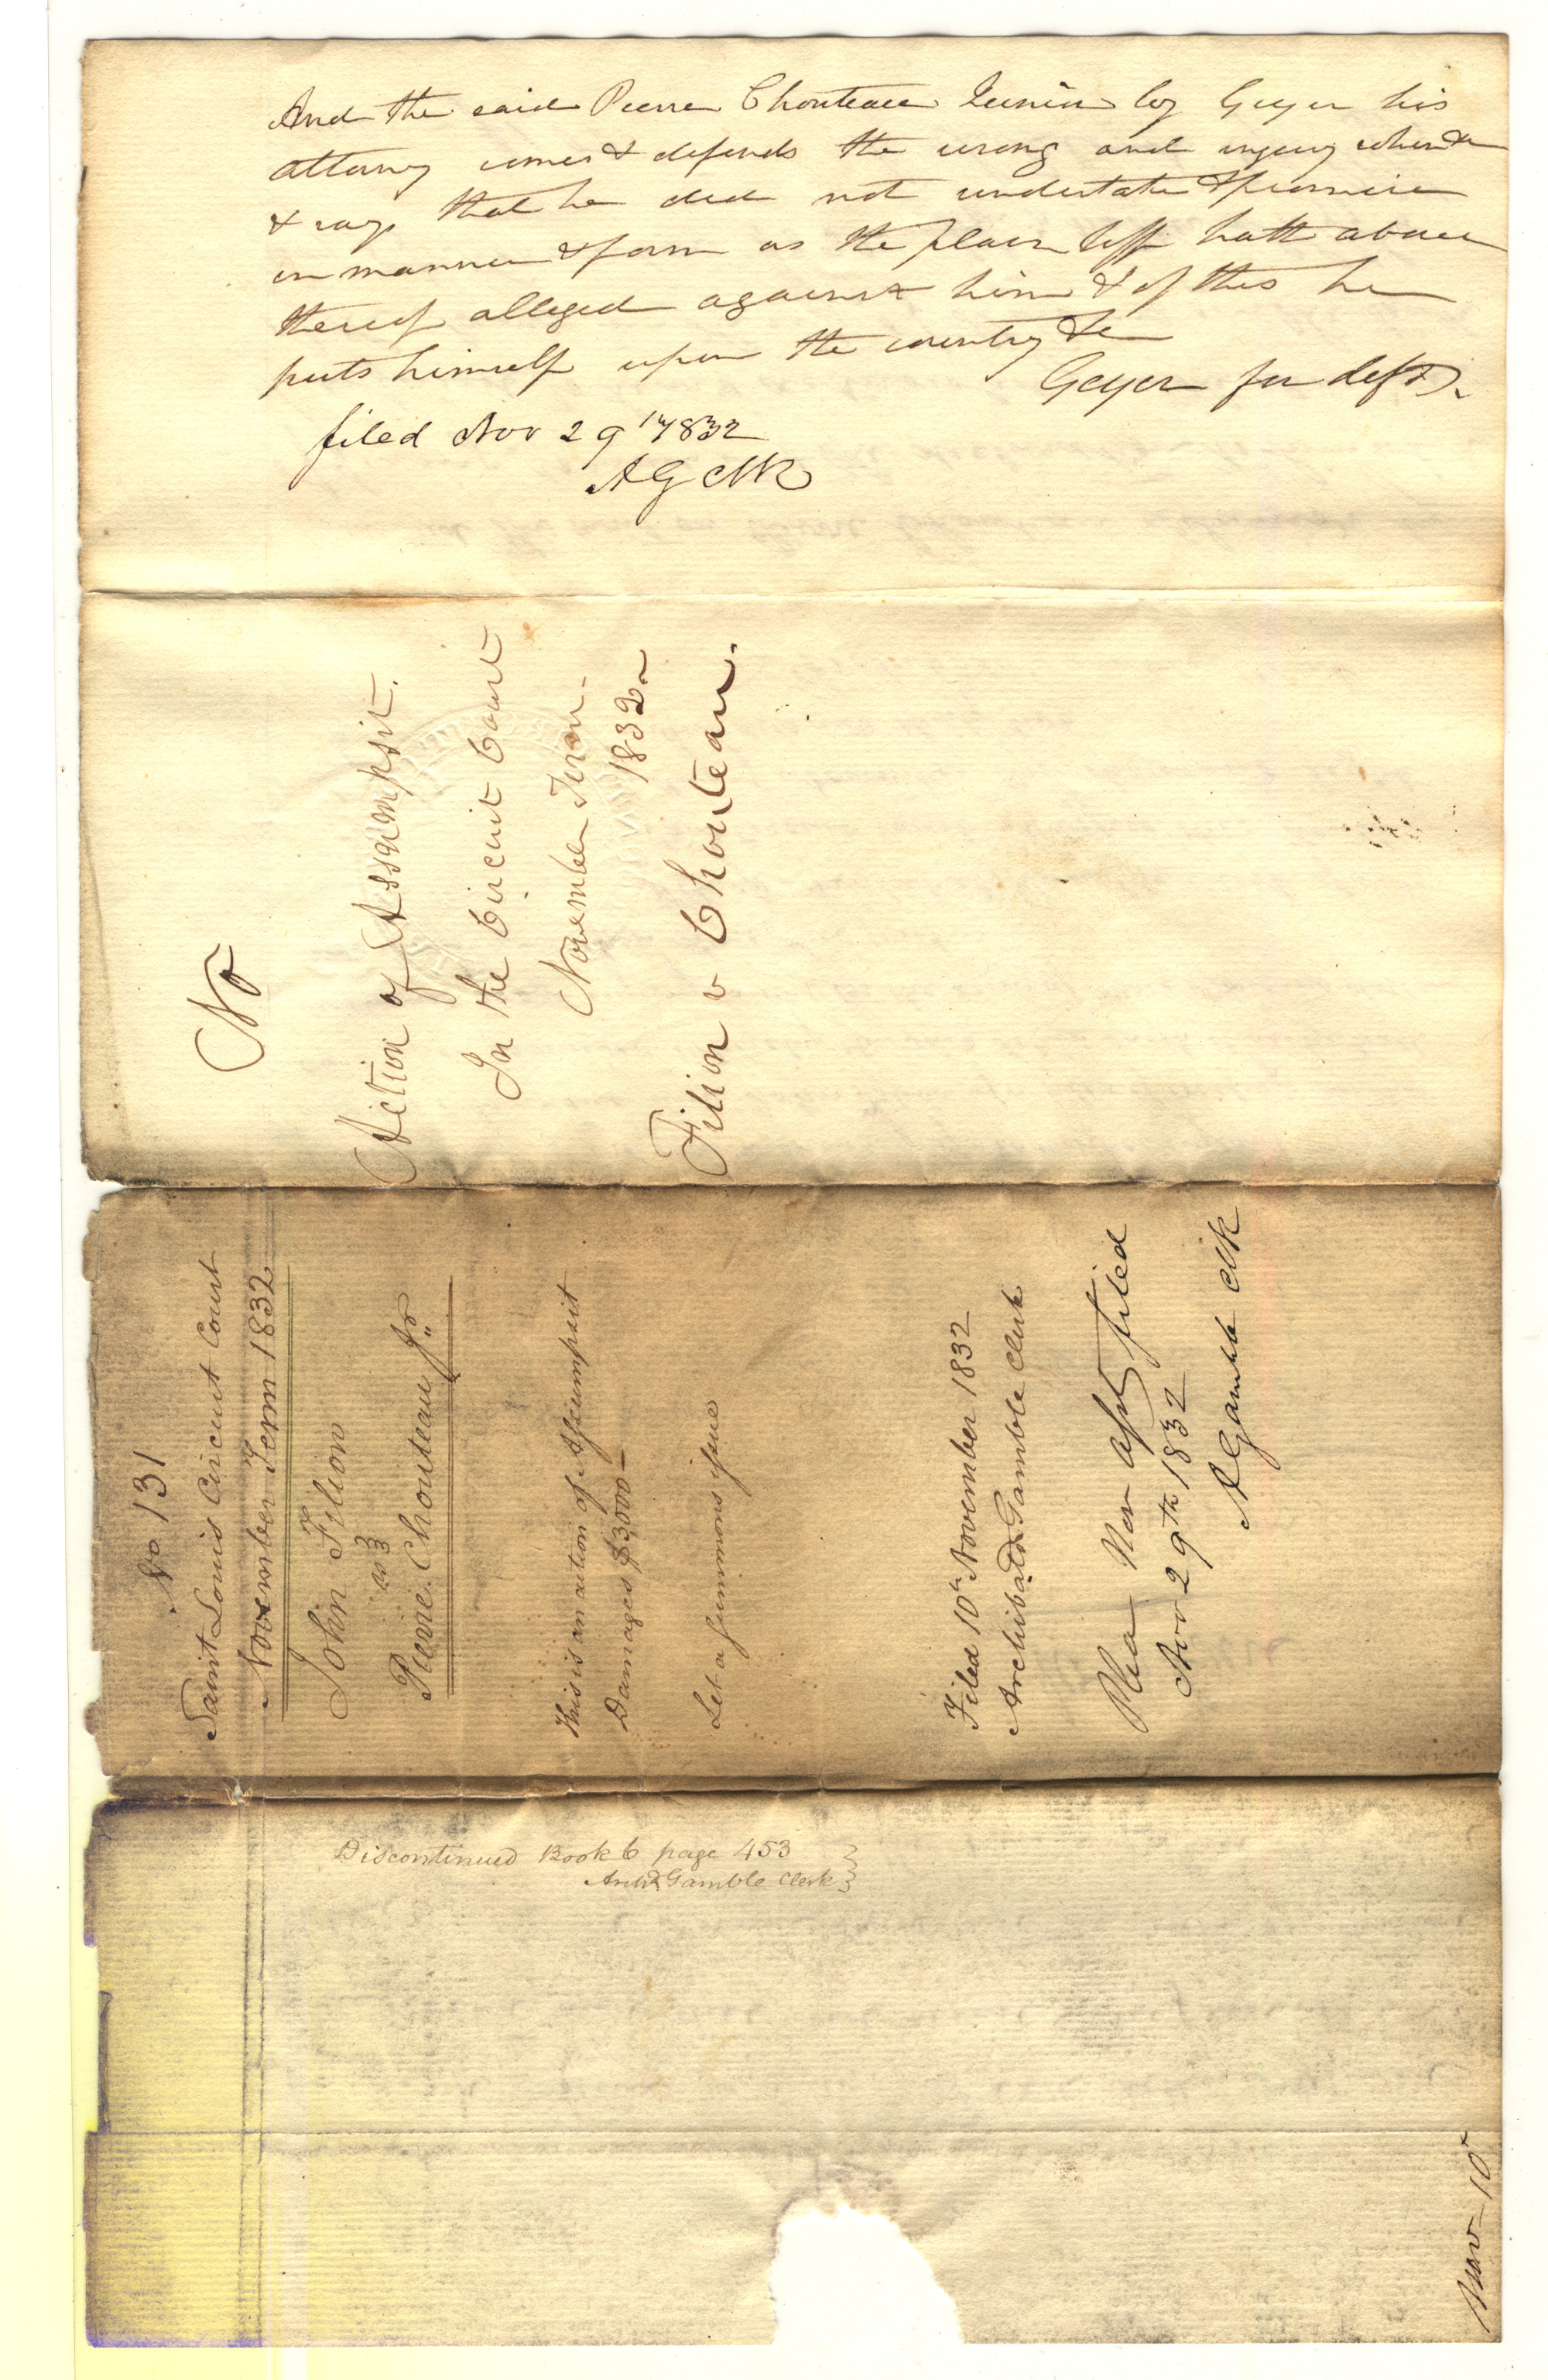 And the said Pierre Chouteau Junior by Geyer his
attorney comes & defends the wrong and injury when &c
& says that he did not undertake & promise
in manner & form as the plaintiff hath above
thereof alleged against him & of this he
puts himself upon the country &c
Geyer for deft.
filed Nov 29th 1832
AG clk
No
Action of Assumpsit.
In the Circuit Court
November Term.
1832
Filion v Chouteau.
No 131
Saint Louis Circuit Court
November Term 1832
John Filion
vs
Pierre Chouteau Jr
This is an action of Assumpsit
Damages $3000
Let a Summons issue
Filed 10th November 1832
Archibald Gamble Clerk
Plea Non Asst filed
Nov 29th 1832
A Gamble clk
Discontinued Book 6 page 453
Archd Gamble Clerk
Nov 10